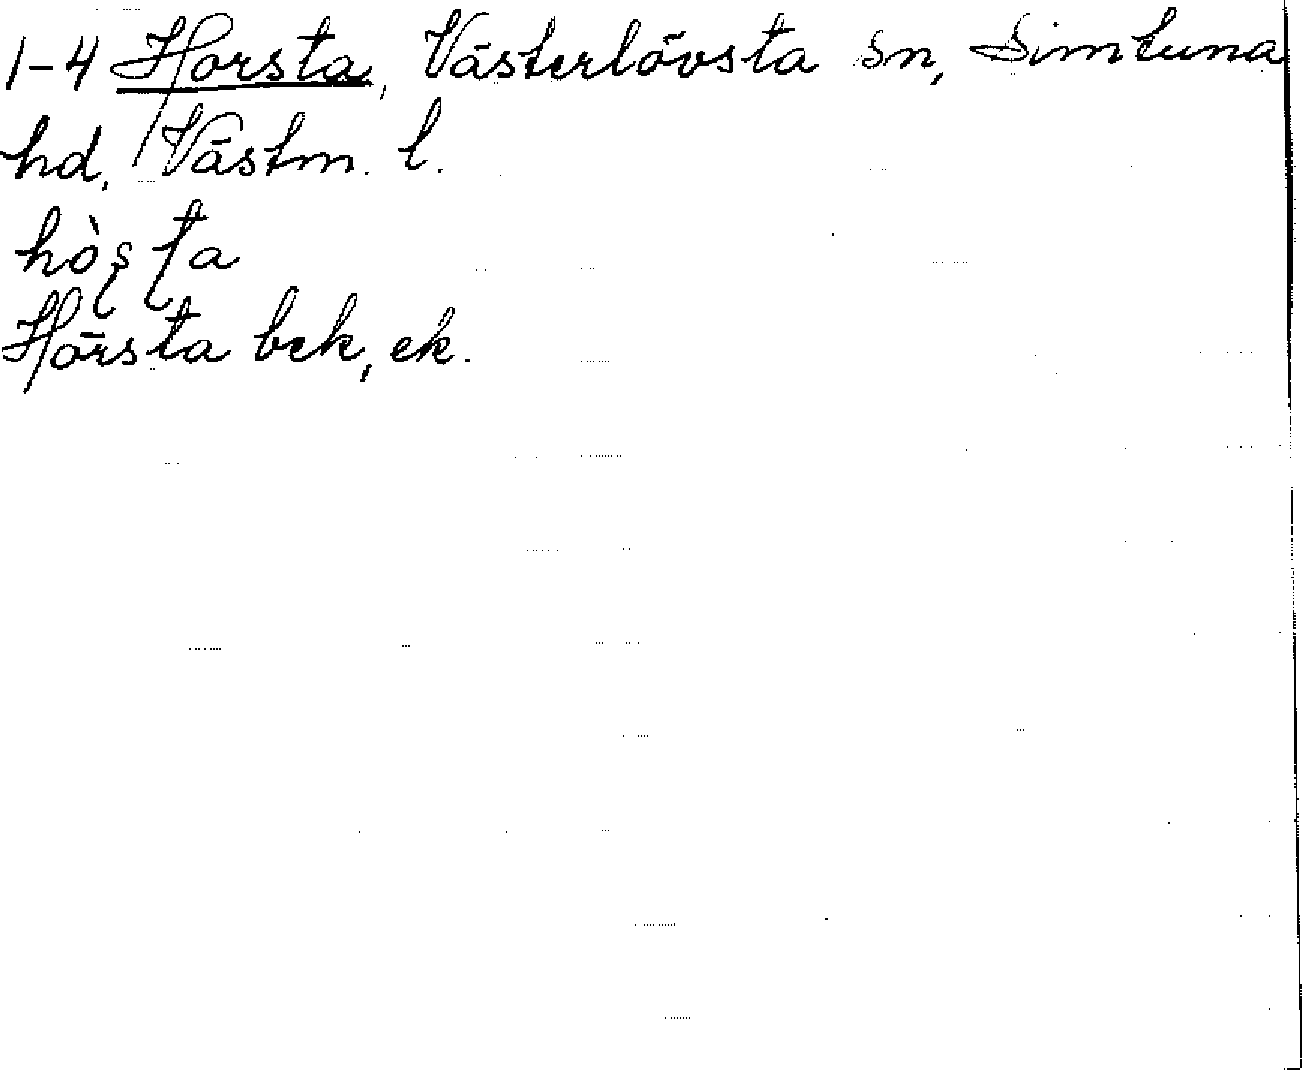 1-4 Horsta, Västerlövsta sn, Simtuna
hd, Västm. l.
hòʂʈa
Hårsta bek, ek.